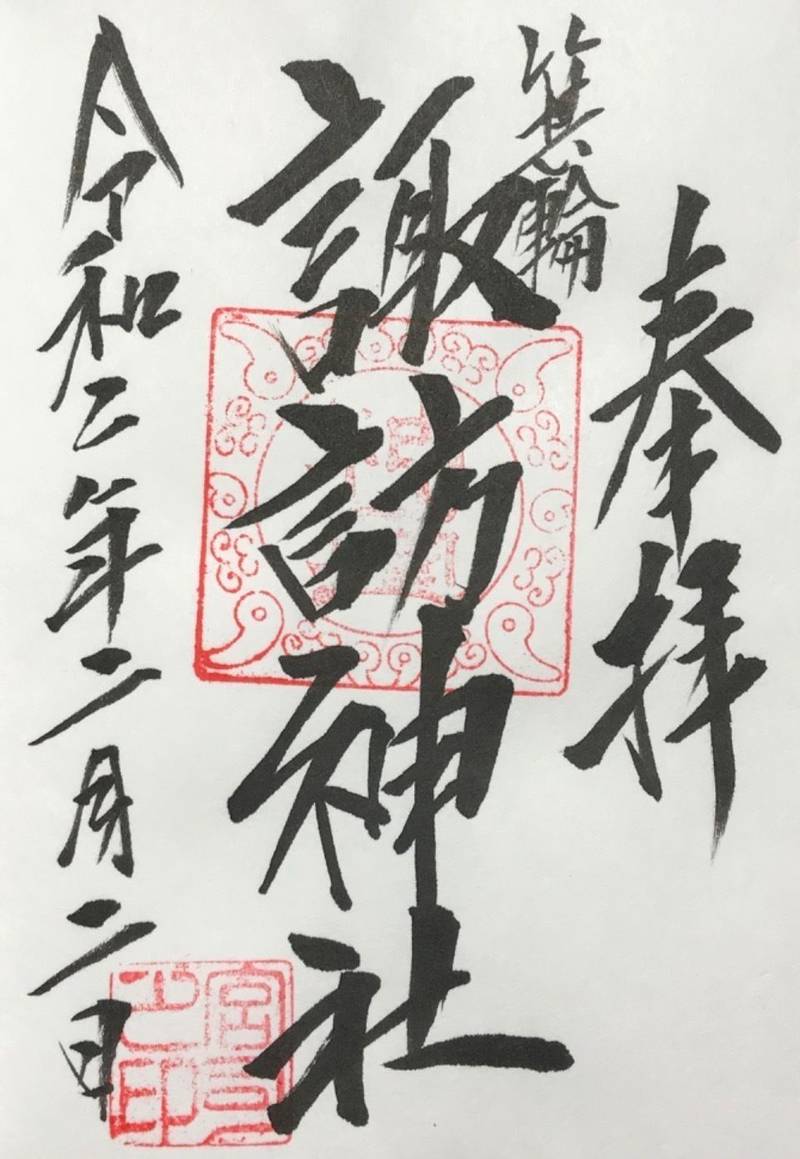 奉拝
箕輪
諏訪神社
令和二年二月二日
宮司之印